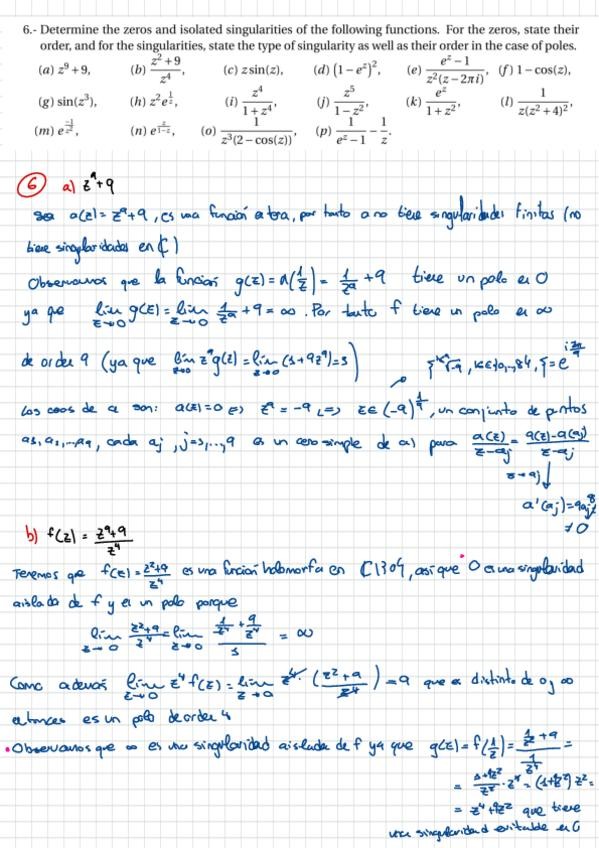 6.- Determine the zeros and isolated singularities of the following functions. For the zeros, state their
order, and for the singularities, state the type of singularity as well as their order in the case of poles.
(a) z⁹ + 9, (b) (z² + 9)/z⁴, (c) z sin(z), (d) (1 − eᶻ)², (e) (eᶻ − 1)/(z²(z − 2πi)), (f) 1 − cos(z),
(g) sin(z³), (h) z²e^(1/z), (i) z⁴/(1 + z⁴), (j) z⁵/(1 − z²), (k) eᶻ/(1 + z²), (l) 1/(z(z² + 4)²),
(m) e^(−1/z²), (n) e^(z/(1−z)), (o) 1/(z³(2 − cos(z))), (p) 1/(eᶻ − 1) − 1/z.
6 a) z⁹+9
Sea a(z) = z⁹+9, es una función entera, por tanto a no tiene singularidades finitas (no
tiene singularidades en ℂ)
Observamos que la función g(z) = a(1/z) = 1/z⁹ + 9 tiene un polo en 0
ya que lim z→0 g(z) = lim z→0 1/z⁹ + 9 = ∞. Por tanto f tiene un polo en ∞
de orden 9 (ya que lim z→0 z⁹g(z) = lim z→0 (1+9z⁹) = 1)
Los ceros de a son: a(z)=0 ⇔ z⁹ = −9 ⇔ z∈(−9)^(1/9), un conjunto de puntos
a1, a2, ..., a9, cada aj, j=1,...,9 es un cero simple de a) para a(z)/(z−aj) = (a(z)−a(aj))/(z−aj)
z→aj ↓
a'(aj) = 9aj⁸
≠0
b) f(z) = (z²+9)/z⁴
Tenemos que f(z) = (z²+9)/z⁴ es una función holomorfa en ℂ\{0}, así que • 0 es una singularidad
aislada de f y es un polo porque
lim z→0 (z²+9)/z⁴ = lim z→0 (1/z² + 9/z⁴)/1 = ∞
Como además lim z→0 z⁴f(z) = lim z→0 z⁴ ((z²+9)/z⁴) = 9 que es distinto de 0, ∞
entonces es un polo de orden 4
• Observamos que ∞ es una singularidad aislada de f ya que g(z) = f(1/z) = (1/z² + 9)/(1/z⁴) =
= (1+9z²)/z² · z⁴ = (1+9z²) z² =
= z² + 9z⁴ que tiene
una singularidad evitable en 0